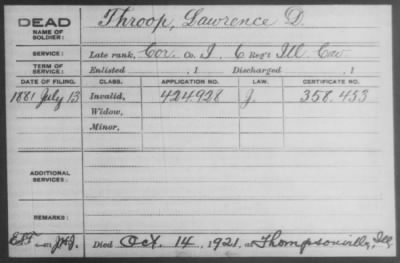 DEAD
NAME OF SOLDIER: Throop, Lawrence D.
SERVICE: Late rank, Cor Co. I, 6 Reg't Ill. Cav
TERM OF SERVICE: Enlisted , 1 Discharged , 1
DATE OF FILING. CLASS. APPLICATION NO. LAW. CERTIFICATE NO.
1881 July 13 Invalid, 424.928 J. 358.433
Widow,
Minor,
ADDITIONAL SERVICES:
REMARKS:
Died Oct. 14, 1921, at Thompsonville, Ill,